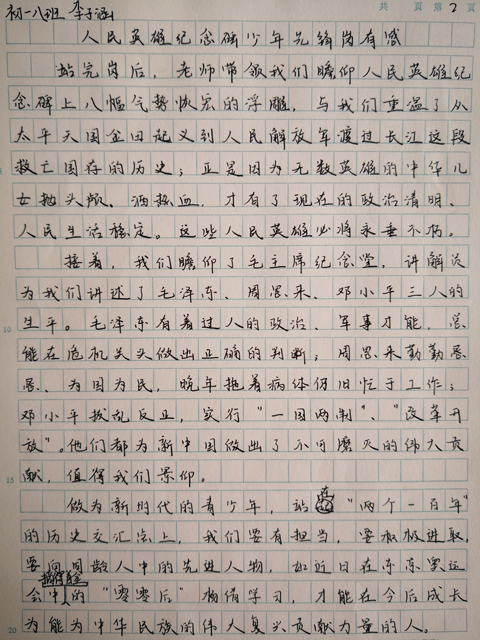 初一八班 李子涵
共 页 第 2 页
人民英雄纪念碑少年先锋岗有感
站完岗后，老师带领我们瞻仰人民英雄纪
念碑上八幅气势恢宏的浮雕，与我们重温了从
太平天国金田起义到人民解放军渡过长江这段
救亡图存的历史；正是因为无数英雄的中华儿
女抛头颅、洒热血，才有了现在的政治清明、
人民生活稳定。这些人民英雄必将永垂不朽。
接着，我们瞻仰了毛主席纪念堂，讲解员
为我们讲述了毛泽东、周恩来、邓小平三人的
生平。毛泽东有着过人的政治、军事才能，总
10
能在危机关头做出正确的判断；周恩来勤勤恳
恳、为国为民，晚年拖着病体仍旧忙于工作；
邓小平拨乱反正，实行“一国两制”、“改革开
放”。他们都为新中国做出了不可磨灭的伟大贡
献，值得我们景仰。
15
做为新时代的青少年，站在“两个一百年”
的历史交汇点上，我们要有担当，要积极进取，
要向同龄人中的先进人物，如近日在东京奥运
会中的“零零后”杨倩学习，才能在今后成长
为能为中华民族的伟大复兴贡献力量的人。
20